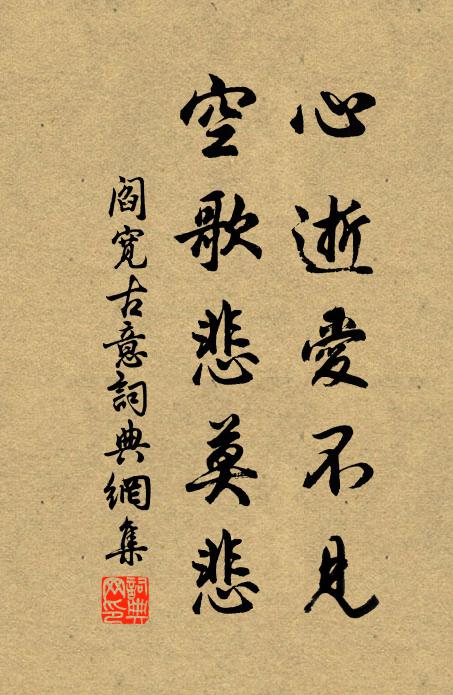 心逝愛不見
空歌悲莫悲
閻寬古意詞典網集
詞典網印